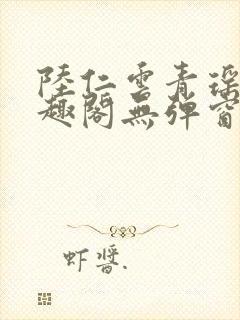 陸仁雲青瑶
趣閣無彈窗
虾醬.